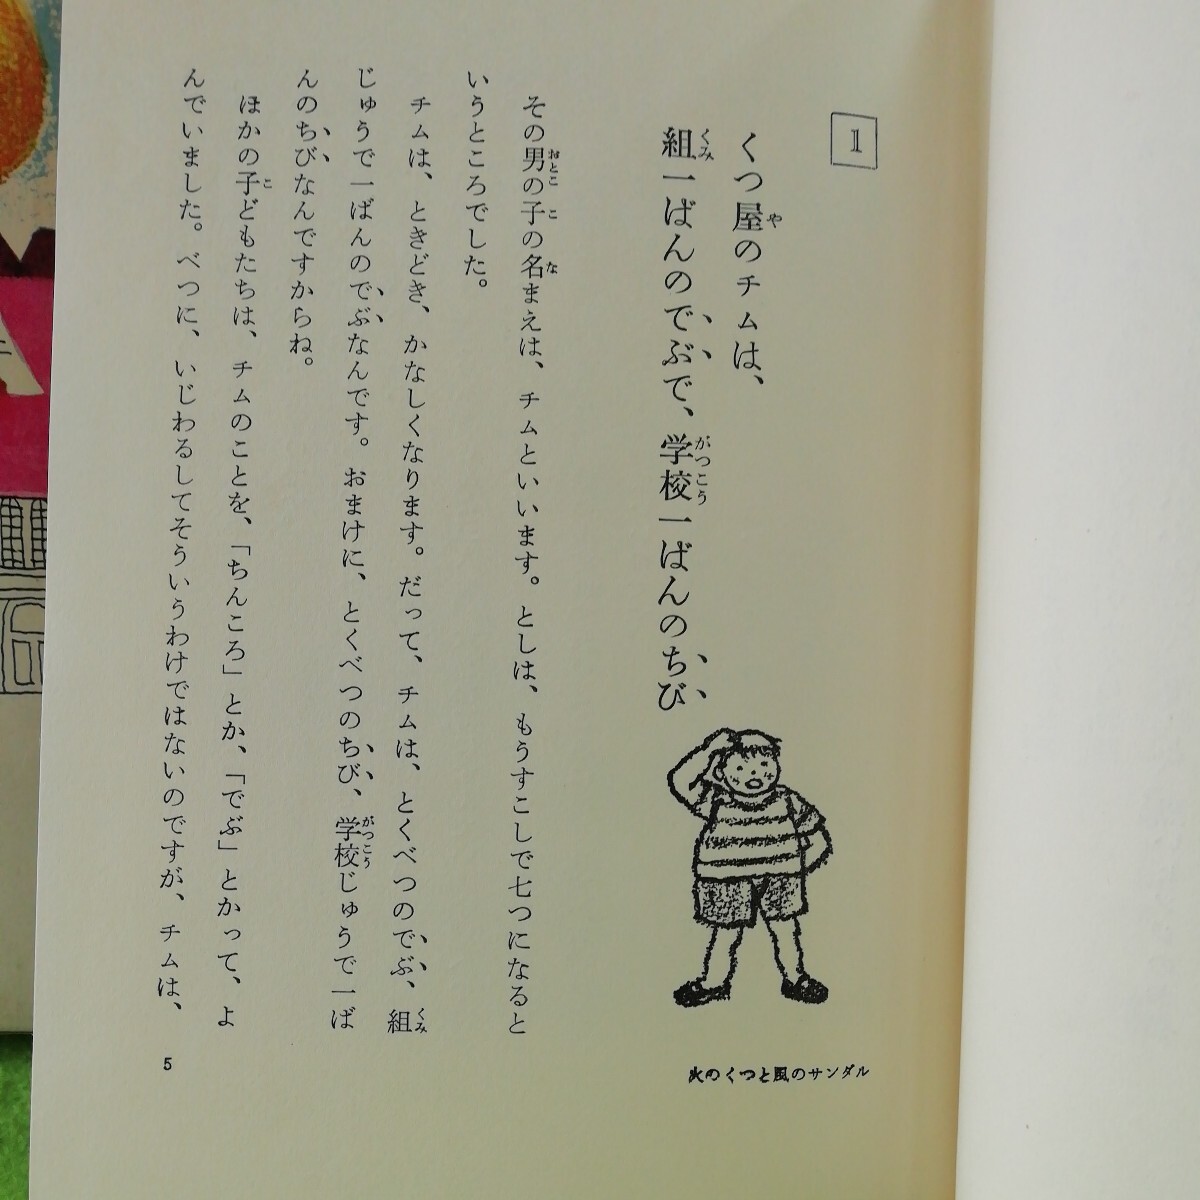 1
くつ屋のチムは、
組一ばんのでぶで、学校一ばんのちび
その男の子の名まえは、チムといいます。としは、もうすこしで七つになると
いうところでした。
チムは、ときどき、かなしくなります。だって、チムは、とくべつのでぶ、組
じゅうで一ばんのでぶなんです。おまけに、とくべつのちび、学校じゅうで一ば
んのちびなんですからね。
ほかの子どもたちは、チムのことを、「ちんころ」とか、「でぶ」とかって、よ
んでいました。べつに、いじわるしてそういうわけではないのですが、チムは、
5
火のくつと風のサンダル